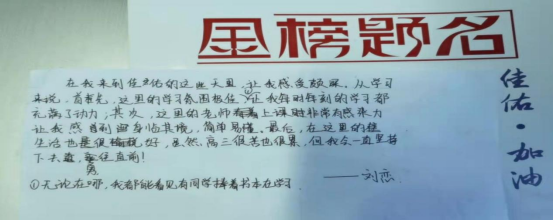 金榜题名
佳佑·加油
在我来到佳佑的这些天里,让我感受颇深。从学习
来说,首先,这里的学习氛围极佳①让我每时每刻的学习都
充满了动力;其次,这里的老师上课时非常有感染力
让我感到身临其境,简单易懂。最后,在这里的
生活也是很好,虽然高三很苦也很累,但我会一直坚持
下去,勇往直前!
①无论在哪,我都能看见有同学捧着书本在学习。
——刘恋